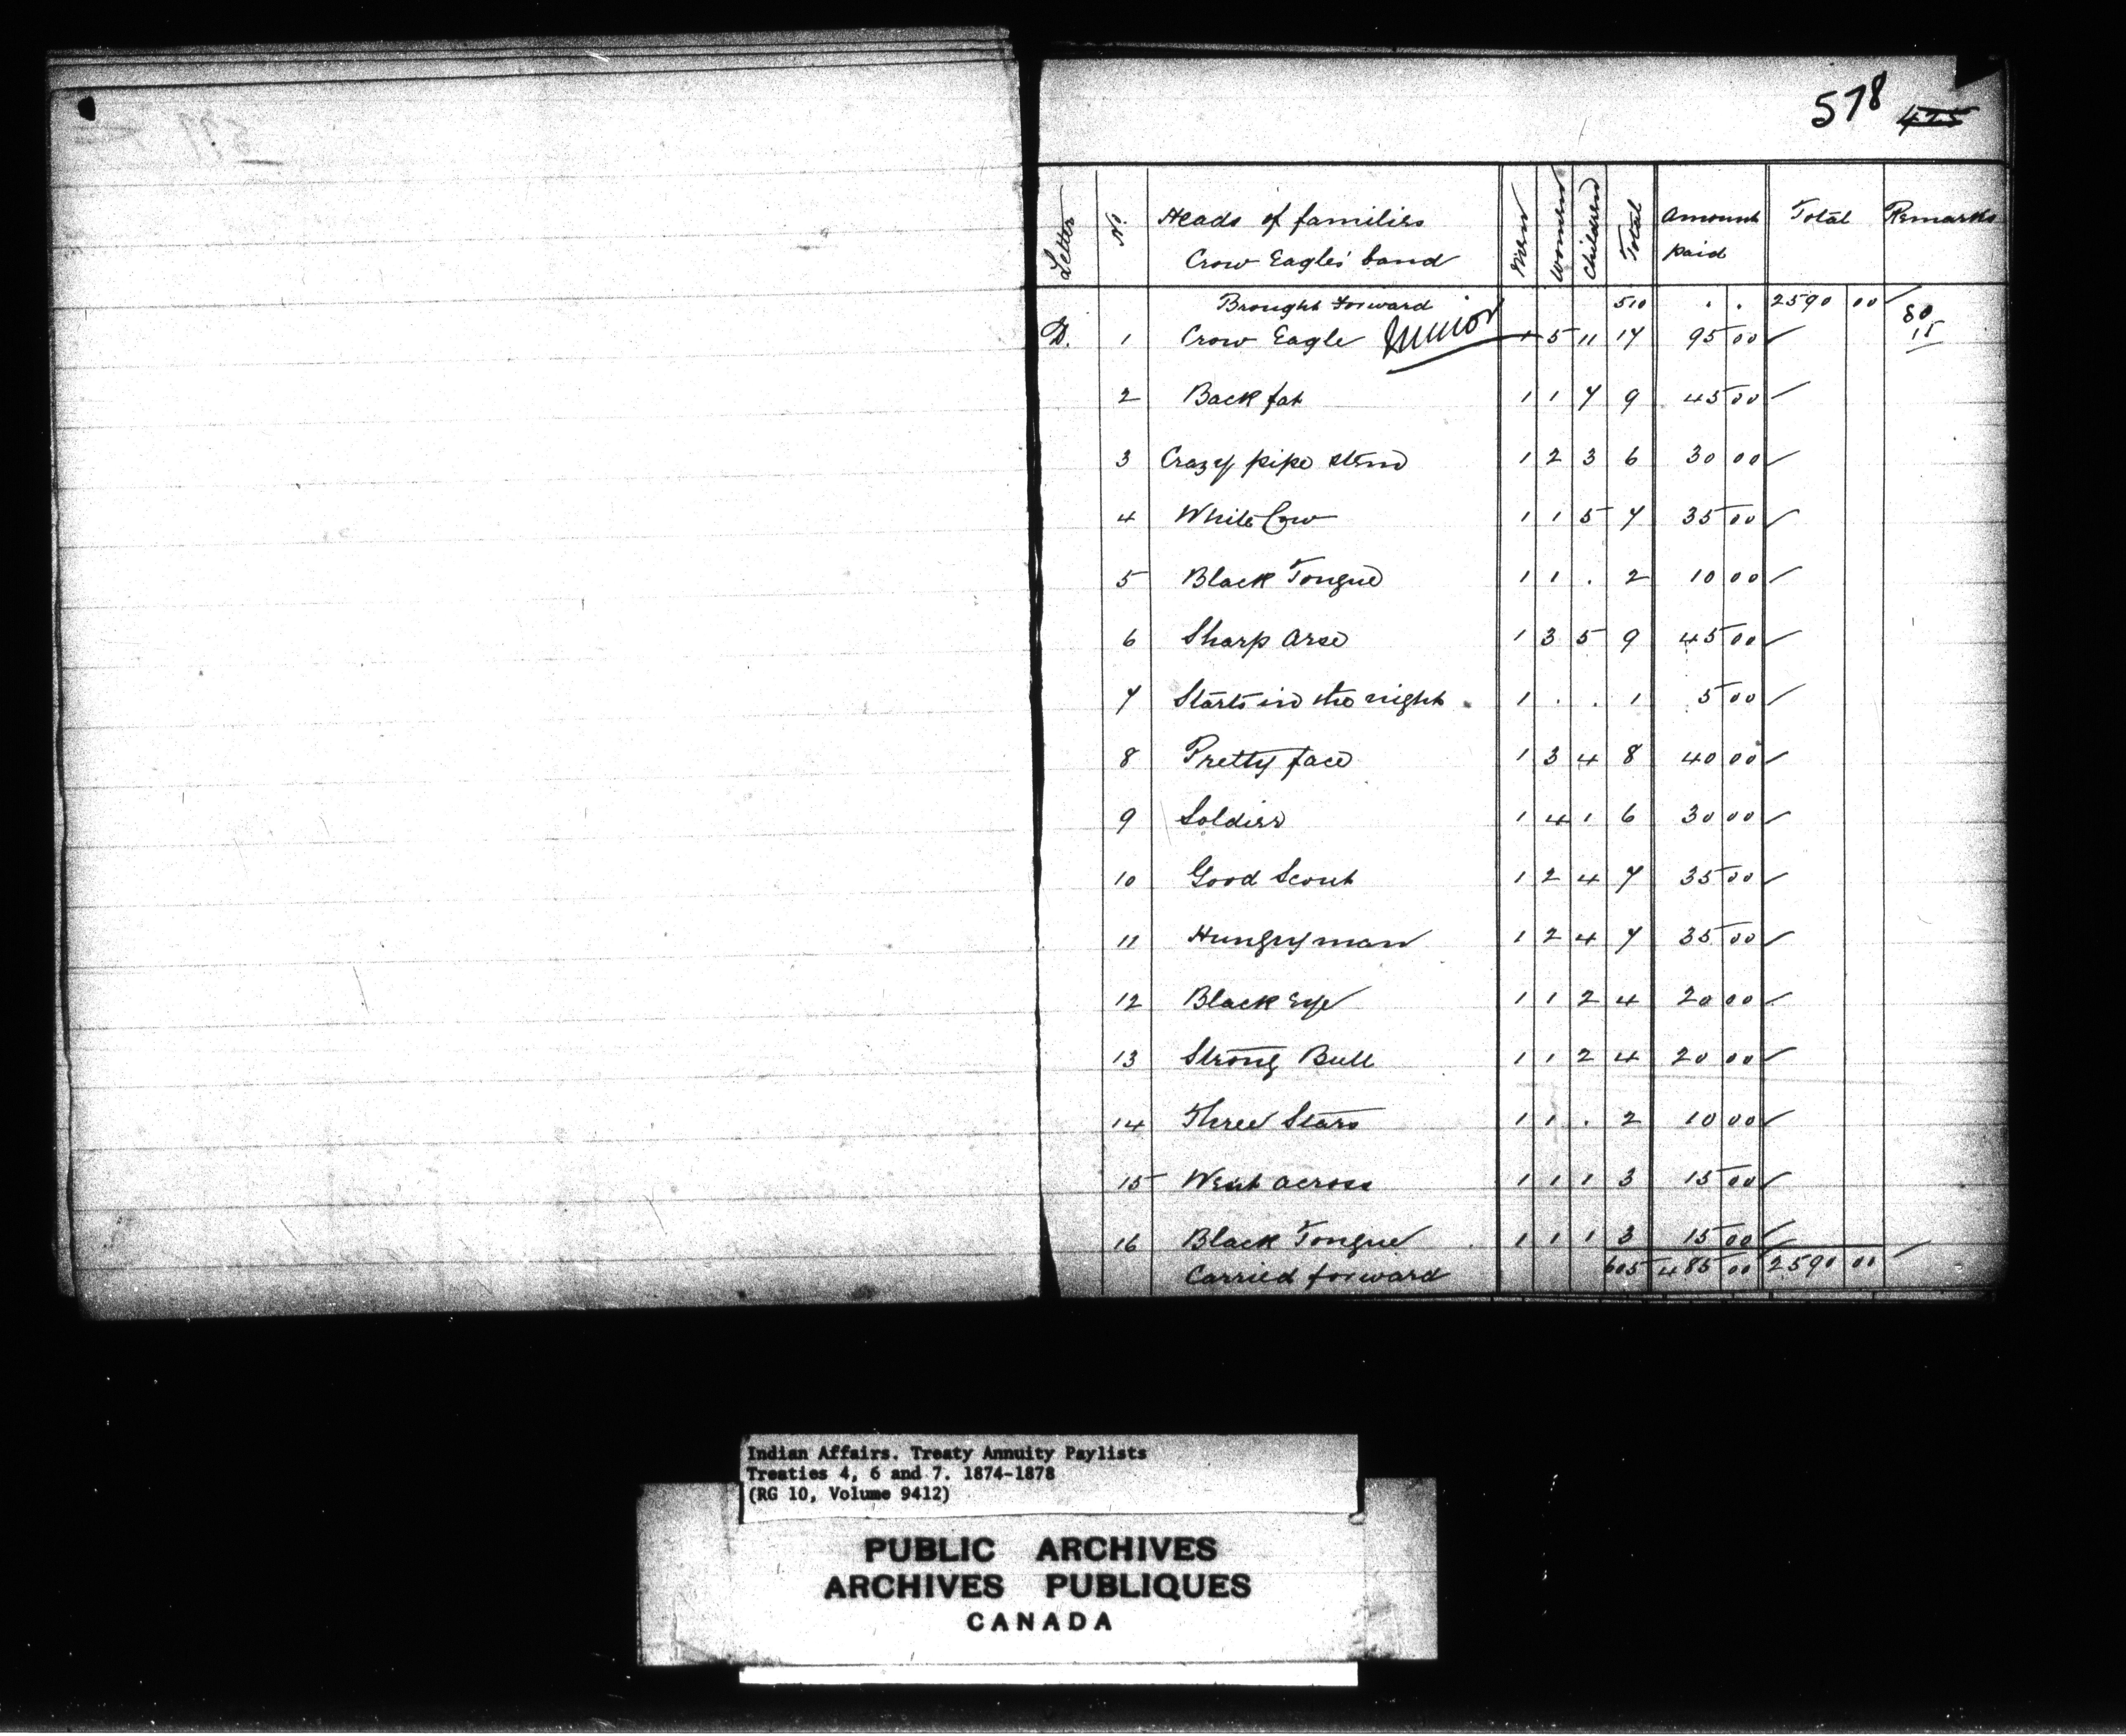 578 475
Letter No. Heads of families Crow Eagles' band Men Women Children Total Amount paid Total Remarks
Brought forward 510 . . 2590 00
D. 1 Crow Eagle Junior 1 5 11 17 95 00 80 15
2 Back fat 1 1 7 9 45 00
3 Crazy pipe stem 1 2 3 6 30 00
4 White Cow 1 1 5 7 35 00
5 Black Tongue 1 1 . 2 10 00
6 Sharp arse 1 3 5 9 45 00
7 Starts in the night 1 . . 1 5 00
8 Pretty face 1 3 4 8 40 00
9 Soldier 1 4 1 6 30 00
10 Good Scout 1 2 4 7 35 00
11 Hungry man 1 2 4 7 35 00
12 Black Eye 1 1 2 4 20 00
13 Strong Bull 1 1 2 4 20 00
14 Three Stars 1 1 . 2 10 00
15 Went across 1 1 1 3 15 00
16 Black Tongue 1 1 1 3 15 00
Carried forward 605 485 00 2590 00
Indian Affairs. Treaty Annuity Paylists
Treaties 4, 6 and 7. 1874-1878
(RG 10, Volume 9412)
PUBLIC ARCHIVES
ARCHIVES PUBLIQUES
CANADA